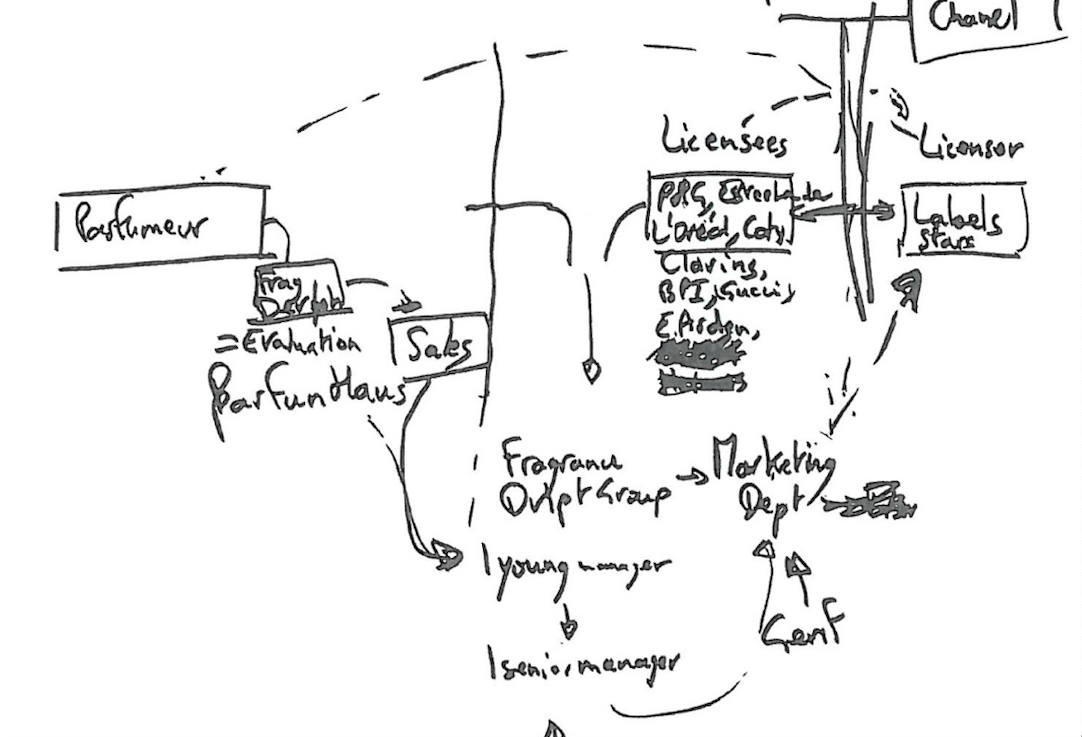 Chanel
Licensees
Licensor
Parfumeur
P&G, Estee Lauder
L'Oréal, Coty
Labels
stars
Clarins,
BPI, Gucci,
E. Arden,
Frag
Sales
= Evaluation
Parfum Haus
Fragrance
Dvlpt Group
Marketing
Dept
1 young manager
Genf
1 senior manager